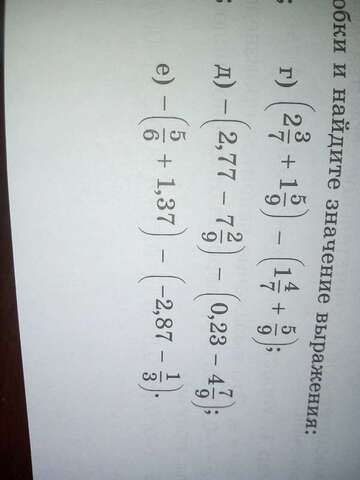 обки и найдите значение выражения:
; г) (2 3/7 + 1 5/9) − (1 4/7 + 5/9);
; д) −(2,77 − 7 2/9) − (0,23 − 4 7/9);
е) −(5/6 + 1,37) − (−2,87 − 1/3).